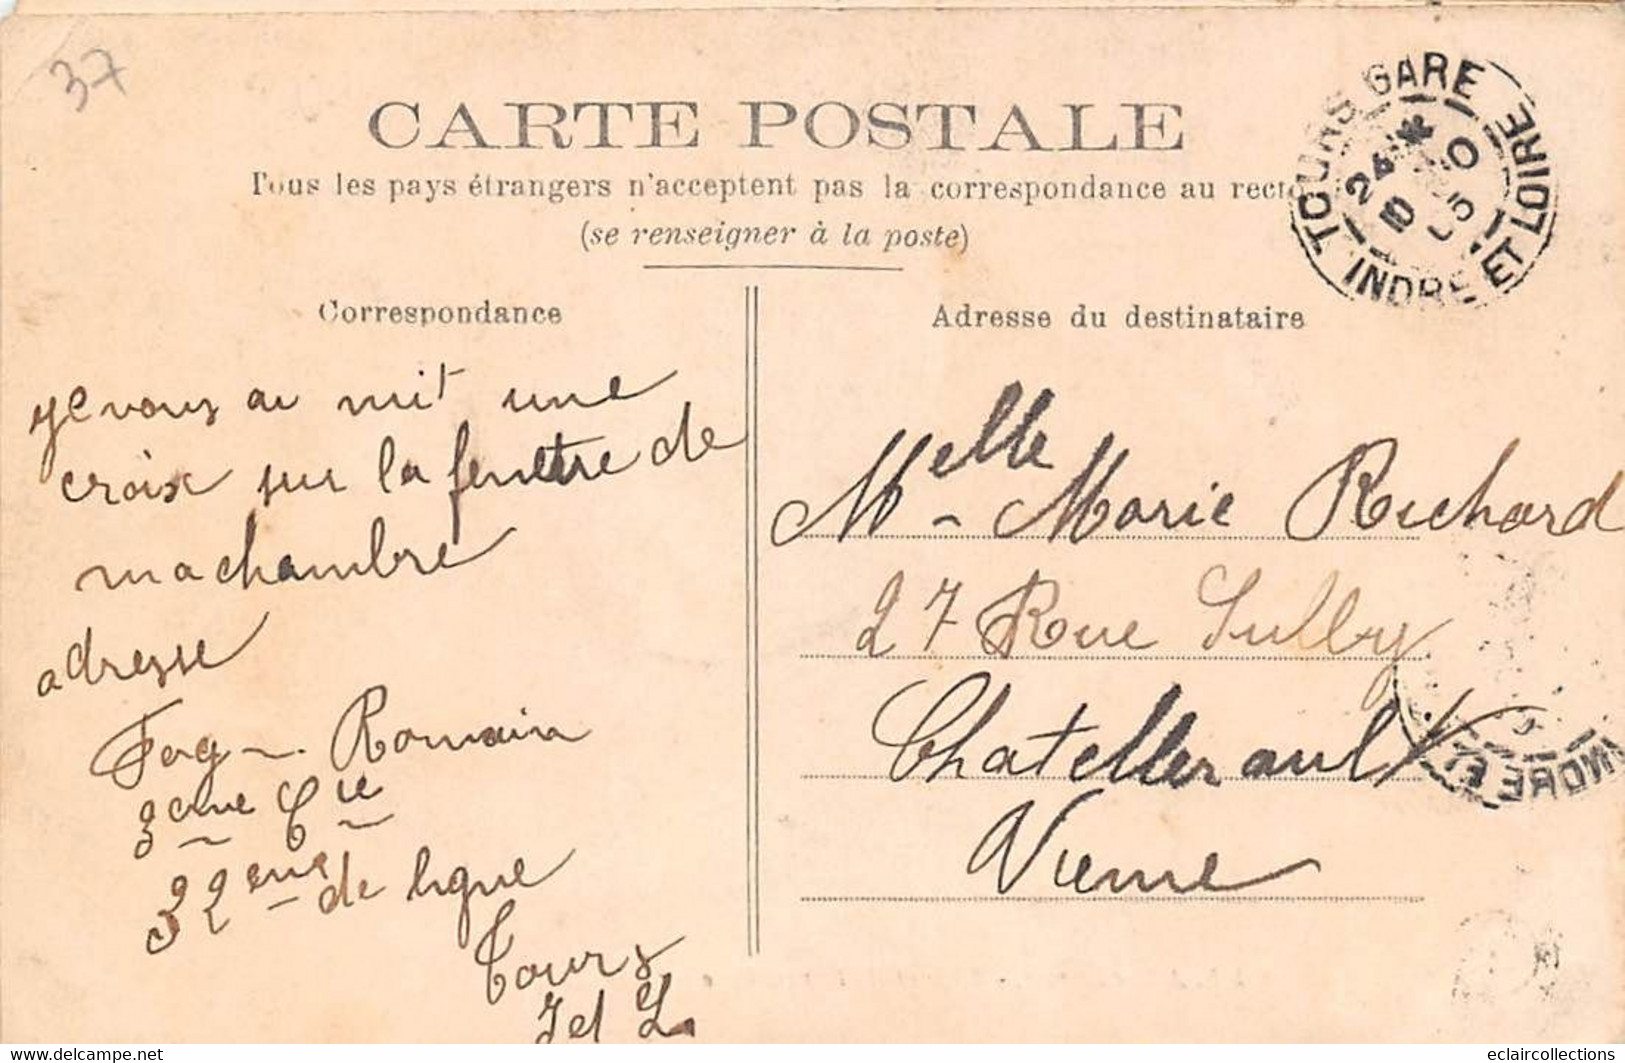 37
CARTE POSTALE
Tous les pays étrangers n'acceptent pas la correspondance au recto
(se renseigner à la poste)
TOURS GARE
24 10
INDRE ET LOIRE
Correspondance
Adresse du destinataire
Je vous ai mit une
croix sur la fenetre de
ma chambre
adresse
Romain
3eme Cie
32eme de ligne
Tours
I et L
Melle Marie Richard
27 Rue Sully
Chatellerault
Vienne
INDRE ET
eclaircollections